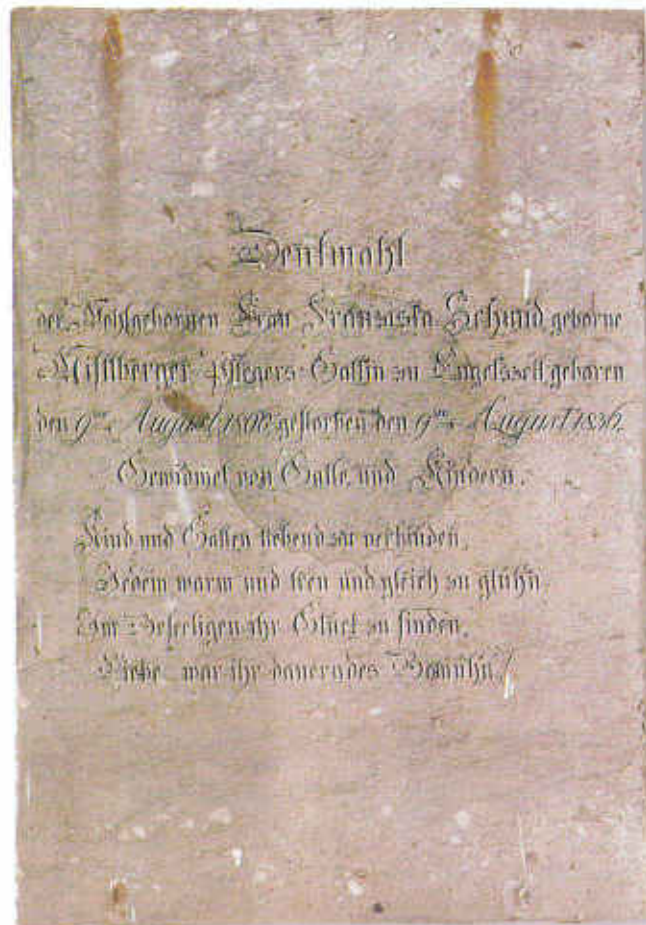 Denkmahl
der Wohlgebornen Frau Franziska Schmid geborne
Mistlberger Pflegers-Gattin zu Engelszell, geboren
den 9ten August 1802 gestorben den 9ten August 1836.
Gewidmet von Gatte und Kindern.
Kind und Gatten liebend zu verbinden,
Jedem warm und treu und gleich zu glühn
Im Beseeligen ihr Glück zu finden,
Liebe war ihr dauerndes Bemühn!